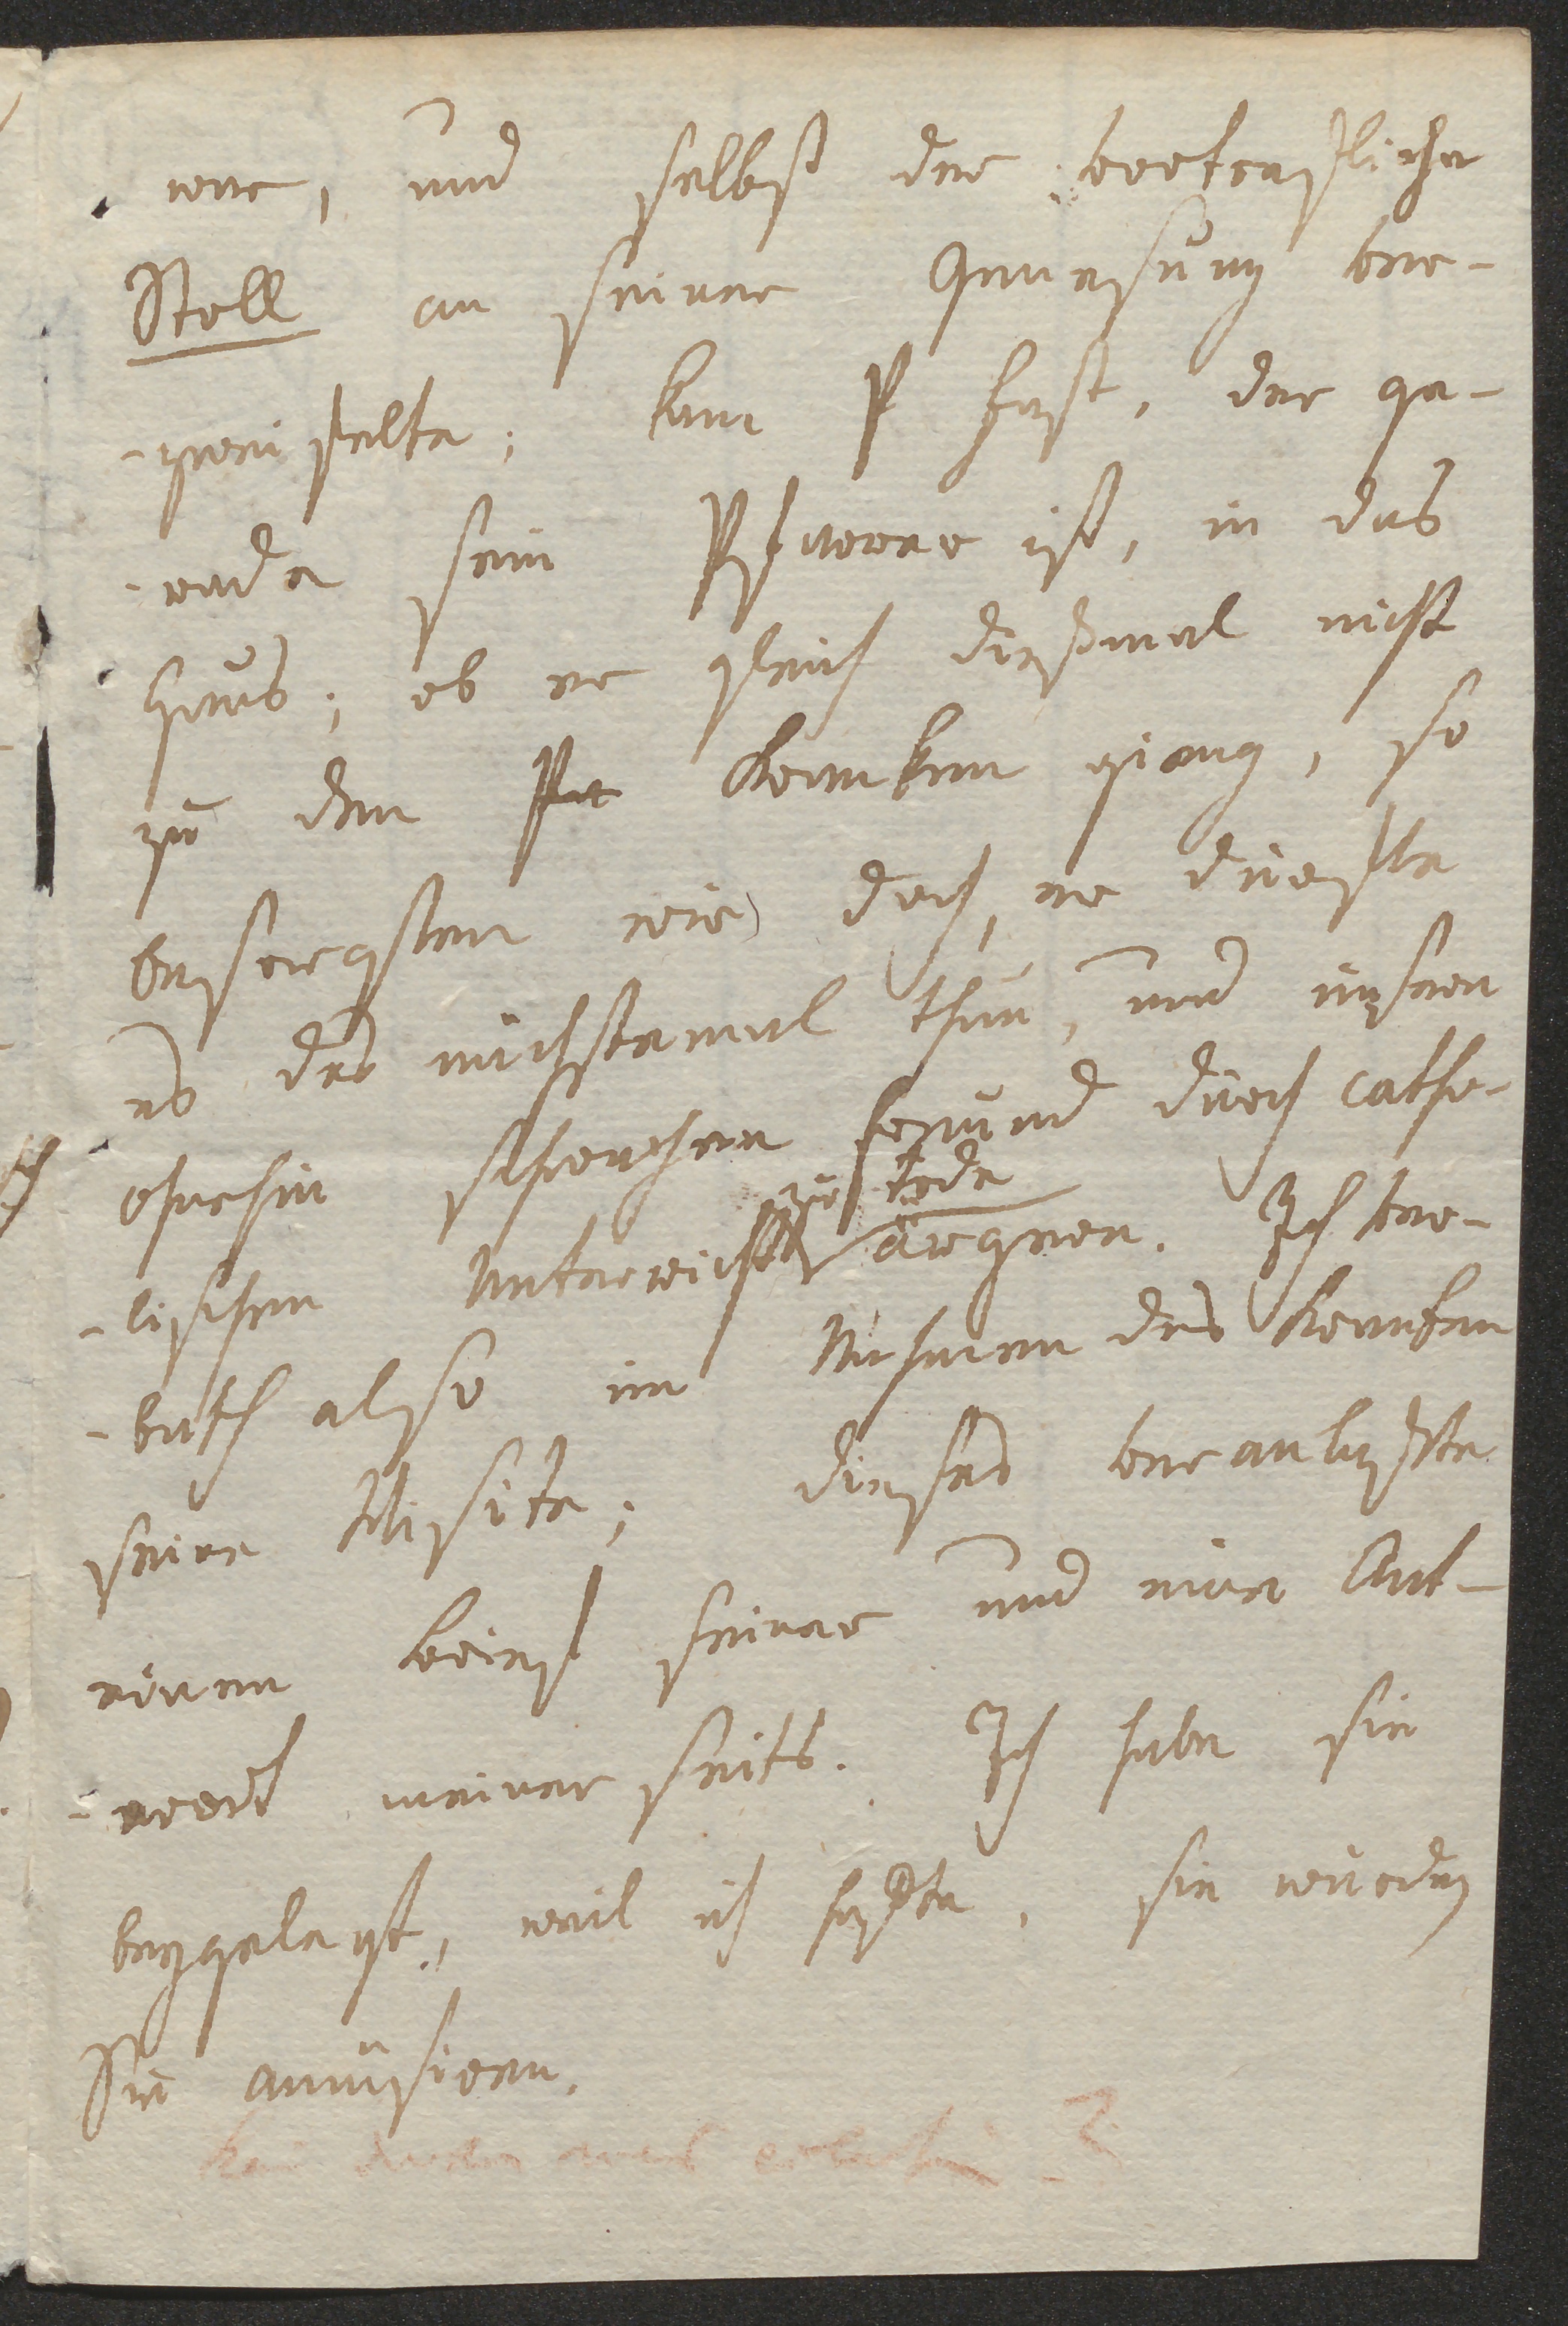 war, und selbst der vortrefliche
Stoll an seiner Genesung ver-
-zweifelte; kam P Fast, der ge-
-rade sein Pfarrer ist, in das
Haus; ob er gleich dießmal nicht
zu dem Kranken gieng, so
besorgten wir doch, er dürfte
es das nächstemal thun, und unsern
ohnehin schwachen Freund durch catho-
-lischen Unterricht zu tode
ärgern. Ich ver-
-bath also im Nahmen des Kranken
seine Visite; dieses veranlaßte
einen Brief seiner und eine Ant-
-wort meiner seits. Ich habe sie
beygelegt, weil ich hofte, sie würden
Sie amüsiren.